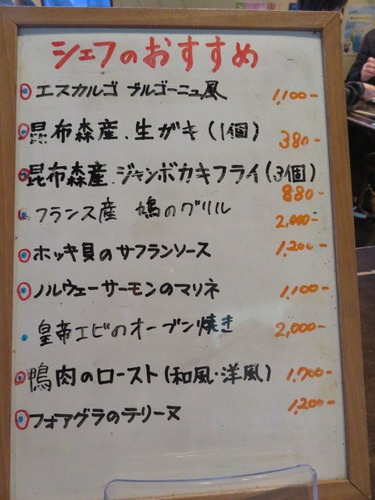 シェフのおすすめ
エスカルゴ ブルゴーニュ風 1,100-
昆布森産.生がき(1個) 380-
昆布森産.ジャンボカキフライ(3個) 880-
フランス産 鳩のグリル 2,000-
ホッキ貝のサフランソース 1,200-
ノルウェーサーモンのマリネ 1,100-
皇帝エビのオーブン焼き 2,000-
鴨肉のロースト(和風・洋風) 1,700-
フォアグラのテリーヌ 1,200-